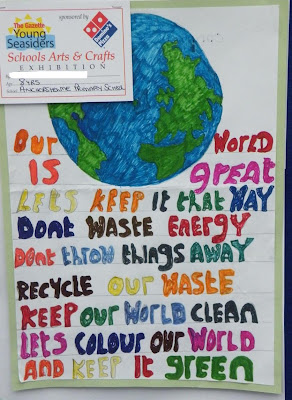 The Gazette
Young
Seasiders
sponsored by
Domino's
Pizza
Schools Arts & Crafts
EXHIBITION
8 YRS
ANCHORSHOLME PRIMARY SCHOOL
OUR WORLD
IS great
LETS KEEP It that WAY
DONt WASTE ENERGY
DONt throw thINgS AWAY
RECYCLE OUR WASTE
KEEP OUR WORLD CLEAN
LETS COLOUR OUR WORLD
AND KEEP It GREEN